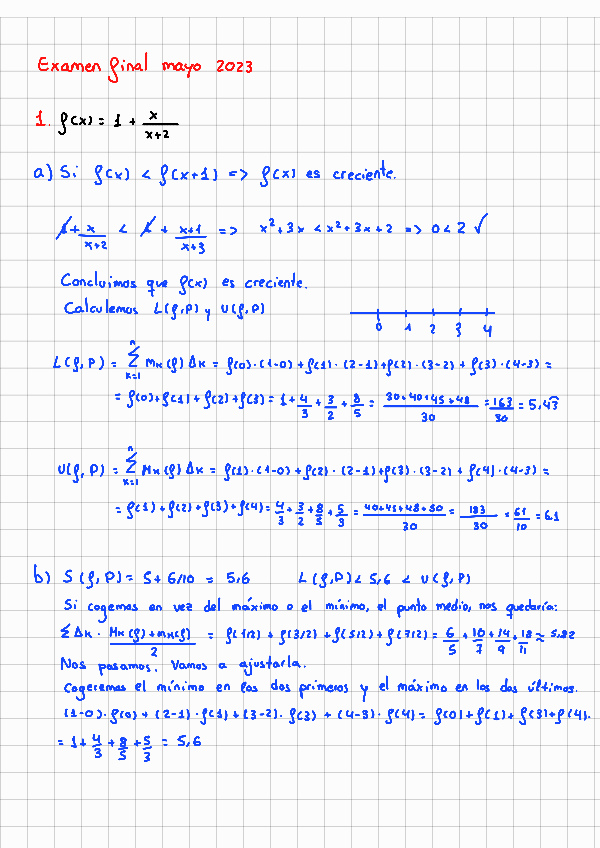 Examen final mayo 2023
1. f(x) = 1 + x/(x+2)
a) Si f(x) < f(x+1) => f(x) es creciente.
1 + x/(x+2) < 1 + (x+1)/(x+3) => x² + 3x < x² + 3x + 2 => 0 < 2 √
Concluimos que f(x) es creciente.
Calculemos L(f,P) y U(f,P)
0 1 2 3 4
L(f,P) = Σ_{k=1}^{n} m_k(f) Δk = f(0)·(1-0) + f(1)·(2-1) + f(2)·(3-2) + f(3)·(4-3) =
= f(0) + f(1) + f(2) + f(3) = 1 + 4/3 + 3/2 + 8/5 = (30+40+45+48)/30 = 163/30 = 5,43
U(f,P) = Σ_{k=1}^{n} M_k(f) Δk = f(1)·(1-0) + f(2)·(2-1) + f(3)·(3-2) + f(4)·(4-3) =
= f(1) + f(2) + f(3) + f(4) = 4/3 + 3/2 + 8/5 + 5/3 = (40+45+48+50)/30 = 183/30 = 61/10 = 6.1
b) S(f,P) = 5 + 6/10 = 5,6 L(f,P) < 5,6 < U(f,P)
Si cogemos en vez del máximo o el mínimo, el punto medio, nos quedaría:
Σ Δk · (M_k(f) + m_k(f))/2 = f(1/2) + f(3/2) + f(5/2) + f(7/2) = 6/5 + 10/7 + 14/9 + 18/11 ≈ 5.82
Nos pasamos. Vamos a ajustarla.
Cogeremos el mínimo en los dos primeros y el máximo en los dos últimos.
(1-0)·f(0) + (2-1)·f(1) + (3-2)·f(3) + (4-3)·f(4) = f(0) + f(1) + f(3) + f(4).
= 1 + 4/3 + 8/5 + 5/3 = 5,6